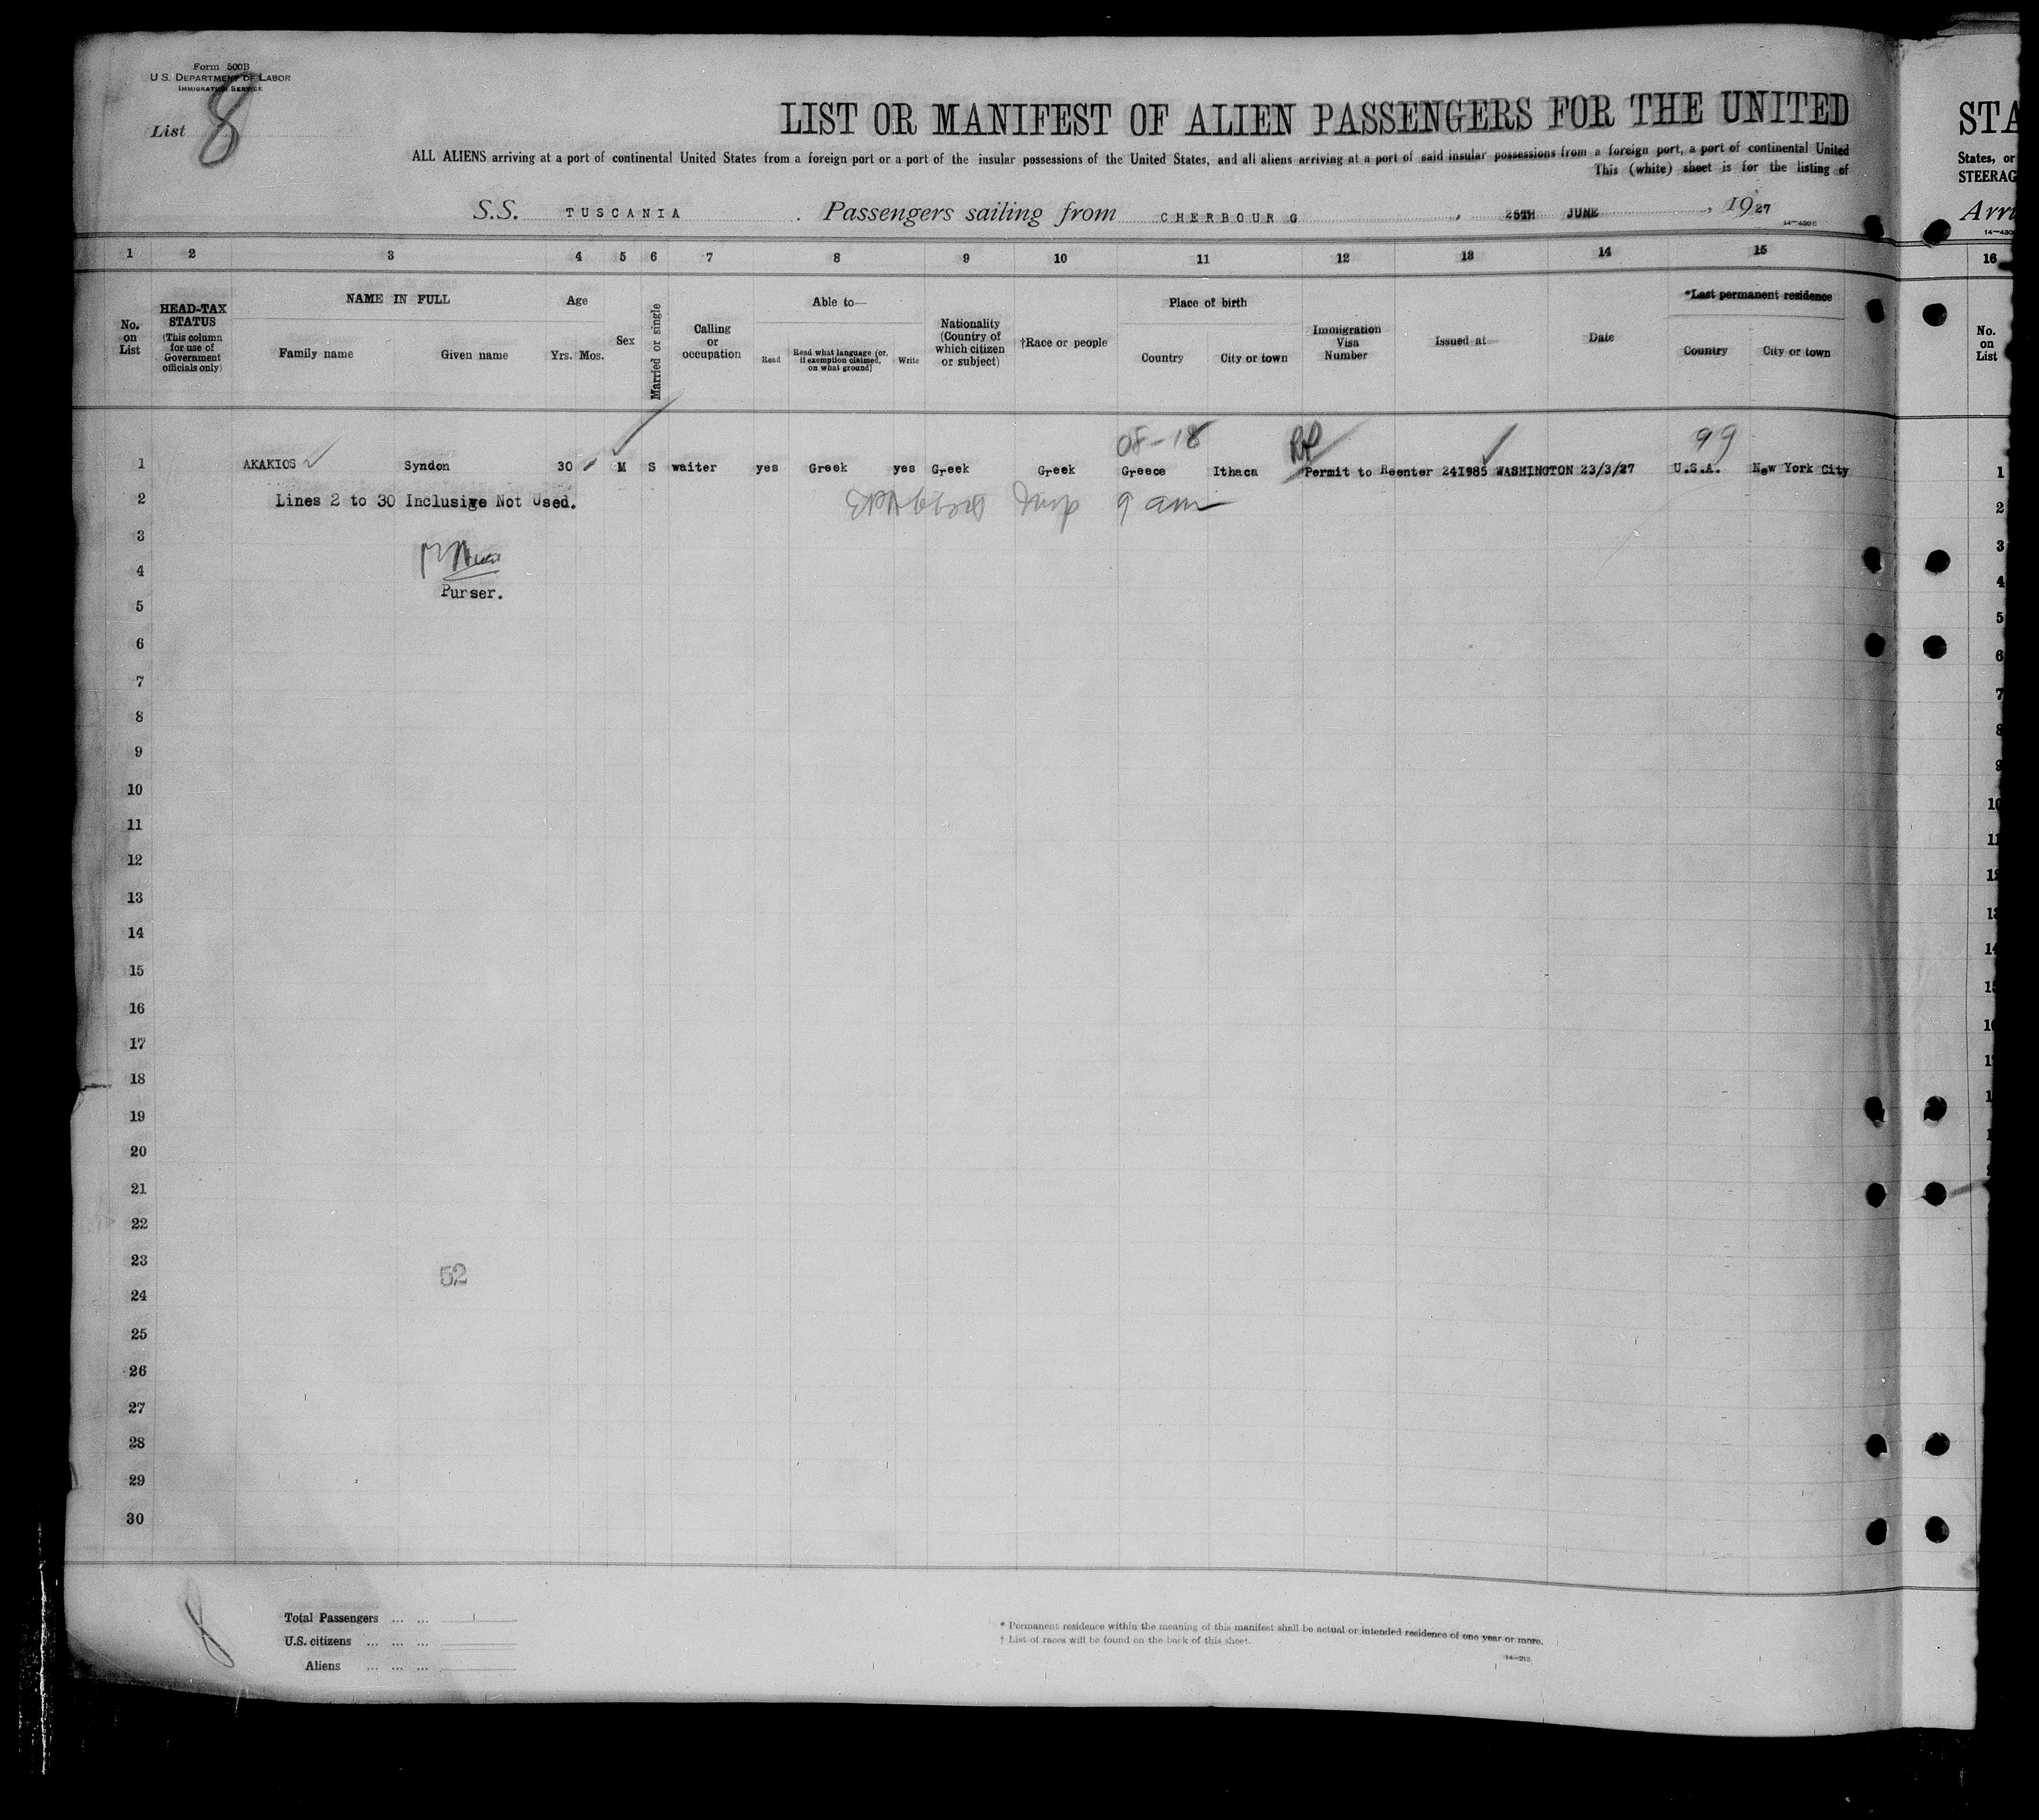 Form 500B
U.S. DEPARTMENT OF LABOR
IMMIGRATION SERVICE
List 8
LIST OR MANIFEST OF ALIEN PASSENGERS FOR THE UNITED
ALL ALIENS arriving at a port of continental United States from a foreign port or a port of the insular possessions of the United States, and all aliens arriving at a port of said insular possessions from a foreign port, a port of continental United
This (white) sheet is for the listing of
S.S. TUSCANIA . Passengers sailing from CHERBOURG , 25TH JUNE , 1927
14—430
1 2 3 4 5 6 7 8 9 10 11 12 13 14 15
No. on List
HEAD-TAX STATUS (This column for use of Government officials only)
NAME IN FULL
Family name Given name
Age
Yrs. Mos.
Sex
Married or single
Calling or occupation
Able to—
Read Read what language (or, if exemption claimed, on what ground) Write
Nationality (Country of which citizen or subject)
†Race or people
Place of birth
Country City or town
Immigration Visa Number
Issued at—
Date
*Last permanent residence
Country City or town
08-18 RP 99
1 AKAKIOS Syndon 30 M S waiter yes Greek yes Greek Greek Greece Ithaca Permit to Reenter 241985 WASHINGTON 23/3/27 U.S.A. New York City
2 Lines 2 to 30 Inclusive Not Used. 9 am
3
4
Purser.
5
6
7
8
9
10
11
12
13
14
15
16
17
18
19
20
21
22
23
52
24
25
26
27
28
29
30
Total Passengers ... ... 1
U.S. citizens ... ... ...
Aliens ... ... ...
* Permanent residence within the meaning of this manifest shall be actual or intended residence of one year or more.
† List of races will be found on the back of this sheet.
14—213
STA
States, or
STEERAG
Arri
14—430
16
No. on List
1
2
3
4
5
6
7
8
9
10
11
12
13
14
15
16